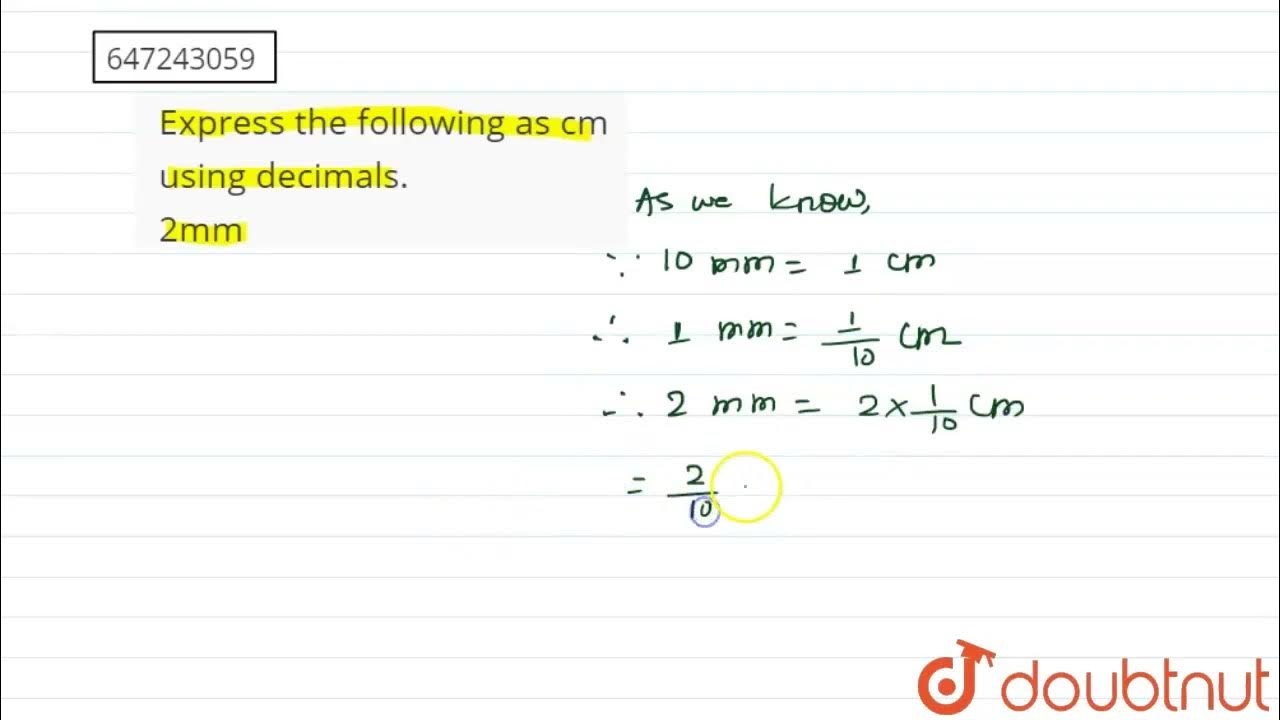 647243059
Express the following as cm
using decimals.
2mm
As we know,
∵ 10 mm = 1 cm
∴ 1 mm = 1/10 cm
∴ 2 mm = 2 × 1/10 cm
= 2/10
doubtnut